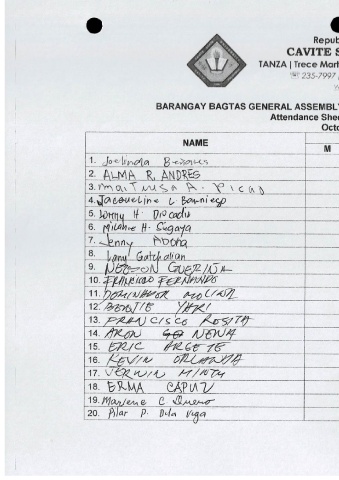 Repub
CAVITE S
TANZA | Trece Mart
235-7997
BARANGAY BAGTAS GENERAL ASSEMBLY
Attendance Shee
Octo
NAME
M
1. Joelinda
2. ALMA R. ANDRES
3. Maitrusa A. Picad
4. Jacqueline L. Barriego
5. H. Diocadiz
6. Milance H. Sugaya
7. Jenny Abona
8. Lany Gatchalian
9. NELSON GUERINA
10. FRANCISCO FERNANDO
11. DOMINADOR MOLINA
12. YAKI
13. FRANCISCO ROSITA
14. ARON NENA
15. ERIC ARGETE
16. KEVIN ORLANDA
17. JERWIN
18. ERMA CAPUZ
19. Marlene C
20. Pilar P. Dela Vega